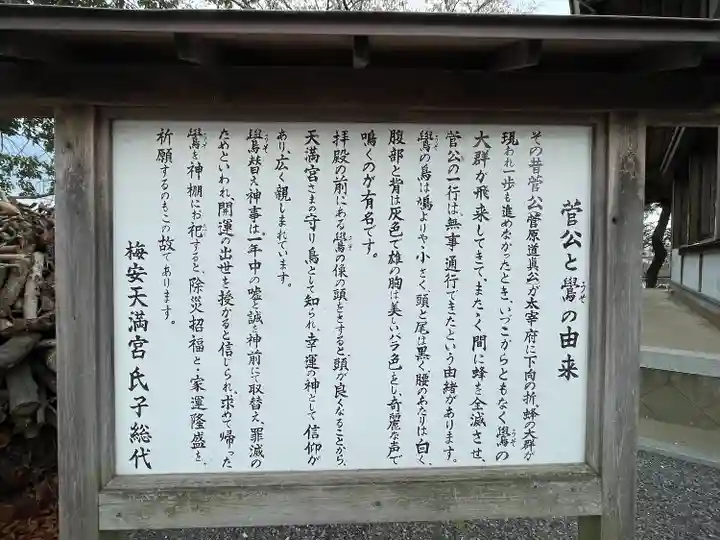 菅公と鷽の由来
うそ
その昔菅公(菅原道真公)が太宰府に下向の折、蜂の大群が
現われ一歩も進めなかったとき、いづこからともなく鷽の
うそ
大群が飛来してきて、またゝく間に蜂を全滅させ、
菅公の一行は無事通行できたという由緒があります。
鷽の鳥は鳩よりやゝ小さく、頭と尾は黒く、腰のあたりは白く、
うそ
腹部と背は灰色で雄の胸は美しいバラ色をし、奇麗な声で
鳴くのが有名です。
拝殿の前にある鷽の像の頭をさすると、頭が良くなることから、
うそ
天満宮さまの守り鳥として知られ、幸運の神として信仰が
あり、広く親しまれています。
鷽替え神事は一年中の嘘を誠を神前にて取替え、罪滅の
うそ
ためといわれ、開運の出世を授かると信じられ、求めて帰った
鷽を神棚にお祀すると、除災招福と・家運隆盛を、
うそ
祈願するのもこの故であります。
梅安天満宮 氏子総代